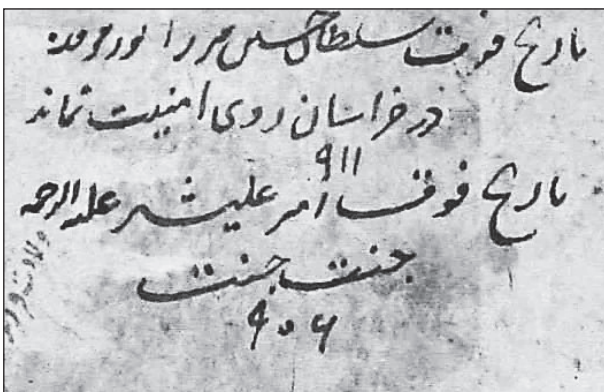 تاریخ فوت سلطان حسین میرزا نور مرقده
در خراسان روی امنیت نماند
۹۱۱
تاریخ فوت امیر علیشیر علیه الرحمه
جنت جنت
۹۰۶